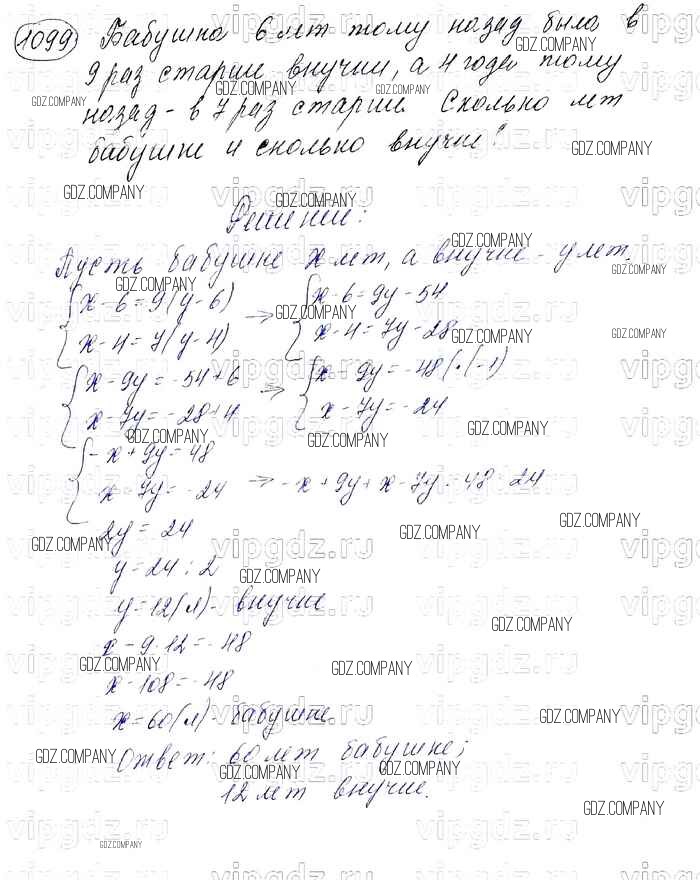 1099 Бабушка 6 лет тому назад была в
9 раз старше внучки, а 4 года тому
назад - в 7 раз старше. Сколько лет
бабушке и сколько внучке?
Решение:
Пусть бабушке x лет, а внучке - y лет.
{x - 6 = 9(y - 6) => {x - 6 = 9y - 54
x - 4 = 7(y - 4) x - 4 = 7y - 28
{x - 9y = -54 + 6 => {x - 9y = -48 | · (-1)
x - 7y = -28 + 4 x - 7y = -24
{-x + 9y = 48
x - 7y = -24 => -x + 9y + x - 7y = 48 - 24
2y = 24
y = 24 : 2
y = 12 (л) - внучке
x - 9 · 12 = -48
x - 108 = -48
x = 60 (л) - бабушке.
Ответ: 60 лет бабушке;
12 лет внучке.
GDZ.COMPANY
vipgdz.ru